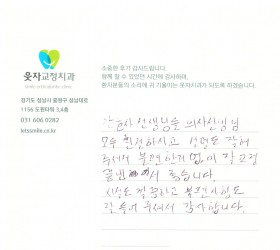 소중한 후기 감사드립니다.
함께 할 수 있었던 시간에 감사하며,
환자분들의 소리에 귀 기울이는 웃자치과가 되도록 하겠습니다.
웃자교정치과
smile orthodontic clinic
경기도 성남시 중원구 성남대로
1156 도원타워 3,4층
031 606 0282
ktssmile.co.kr
간호사 선생님들 의사선생님
모두 친절하시고 설명도 잘해
주셔서 불편한거 없이 잘 교정
끝낸 서 좋습니다.
시설도 깔끔하고 불편사항도
잘 들어 주셔서 감사합니다.